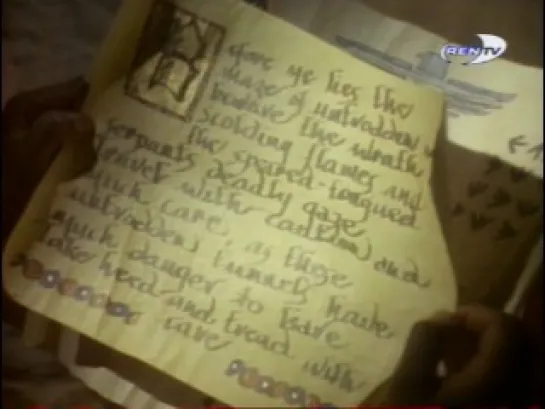 REN TV
fore ye lies the
maze of untrodden
beware the wrath
scolding flames and
the speared-tongued
serpants deadly gaze
travel with caution and
much care, as those
untrodden tunnels have
much danger to bare
take heed and tread with
care